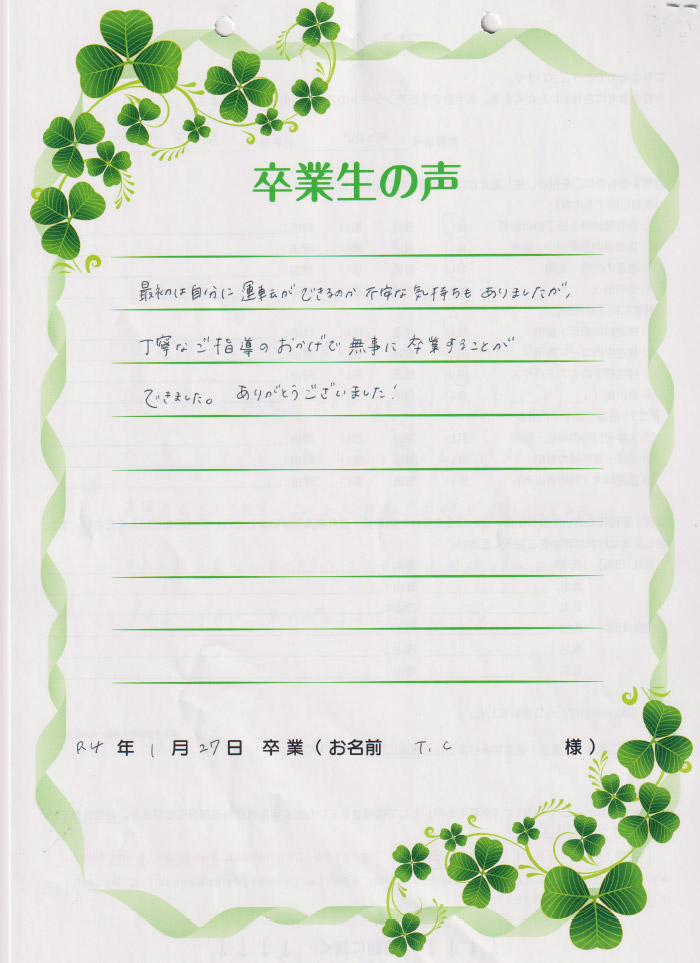 卒業生の声
最初は自分に運転ができるのか不安な気持ちもありましたが、
丁寧なご指導のおかげで無事に卒業することが
できました。 ありがとうございました!
R4 年 1 月 27 日 卒業(お名前 T.C 様)